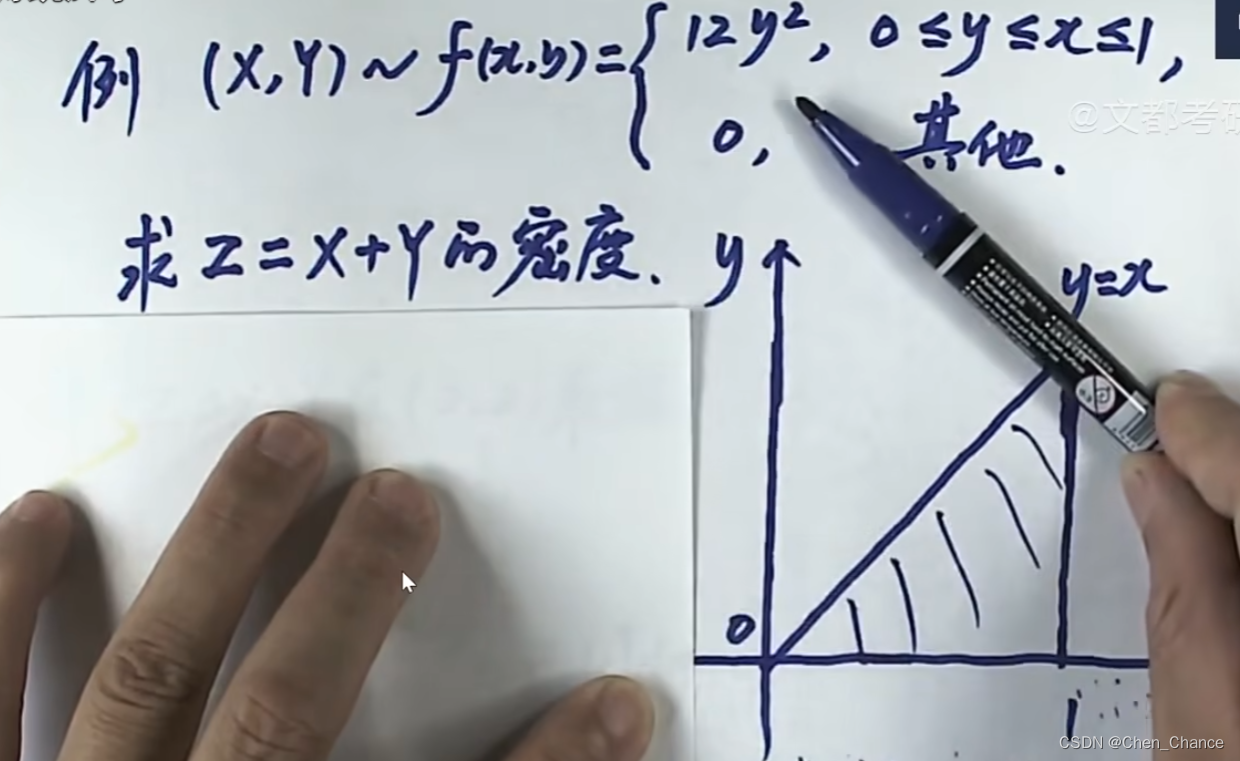 例 (X,Y)~f(x,y)={12y², 0≤y≤x≤1,
0, 其他.
@文都考研
求Z=X+Y的密度.
y
y=x
0
1
CSDN @Chen_Chance